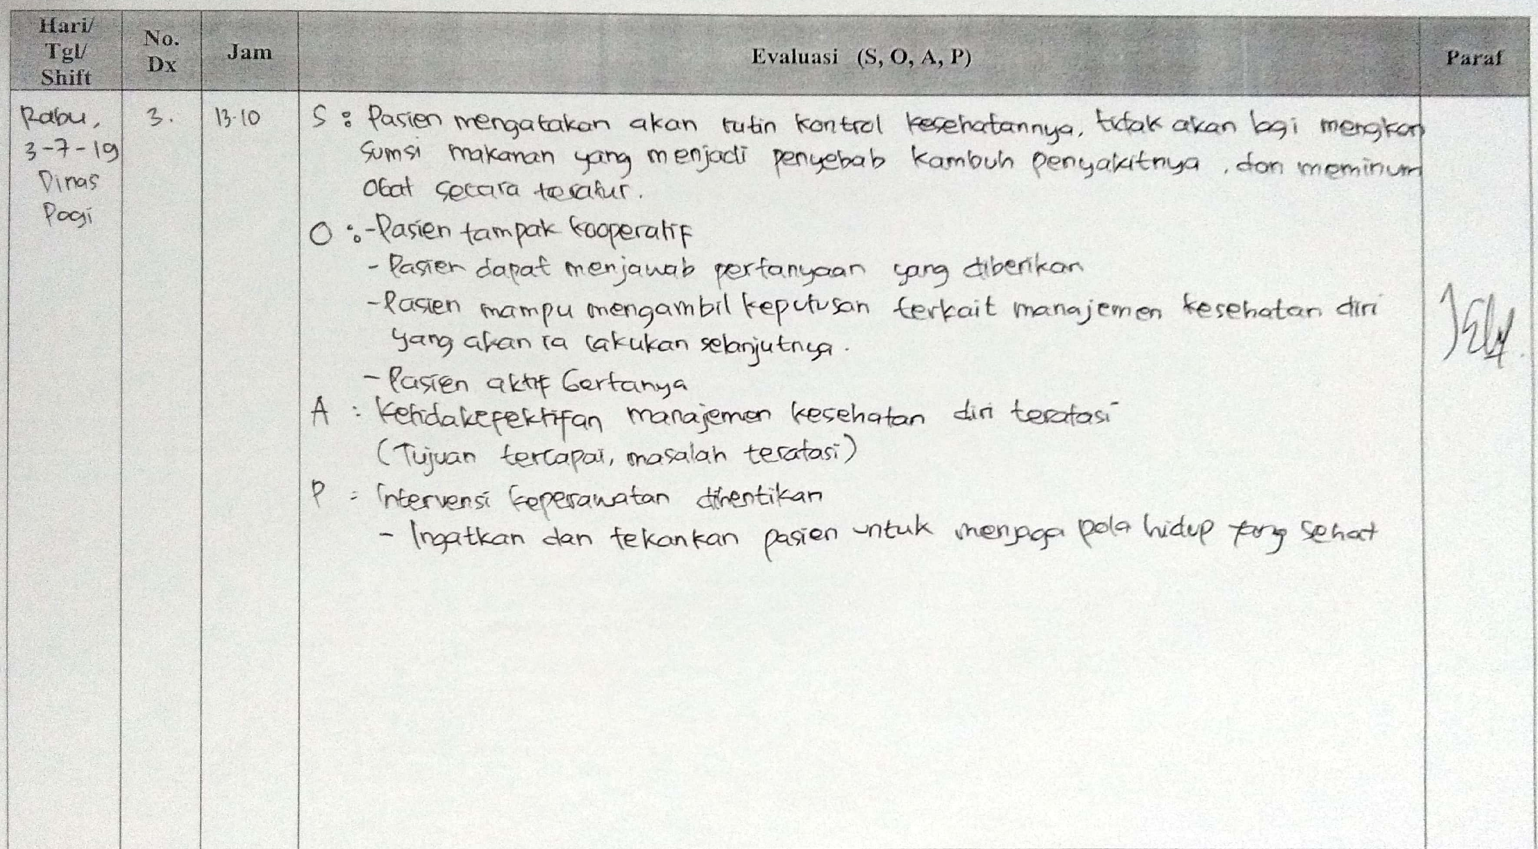 Hari/
Tgl/
Shift
No.
Dx
Jam
Evaluasi (S, O, A, P)
Paraf
Rabu,
3-7-19
Dinas
Pagi
3.
13.10
S : Pasien mengatakan akan rutin kontrol kesehatannya, tidak akan lagi mengkon
sumsi makanan yang menjadi penyebab kambuh penyakitnya, dan meminum
obat secara teratur.
O : - Pasien tampak kooperatif
- Pasien dapat menjawab pertanyaan yang diberikan
- Pasien mampu mengambil keputusan terkait manajemen kesehatan diri
yang akan ia lakukan selanjutnya.
- Pasien aktif bertanya
A : Ketidakefektifan manajemen kesehatan diri teratasi
(Tujuan tercapai, masalah teratasi)
P : Intervensi keperawatan dihentikan
- Ingatkan dan tekankan pasien untuk menjaga pola hidup yang sehat